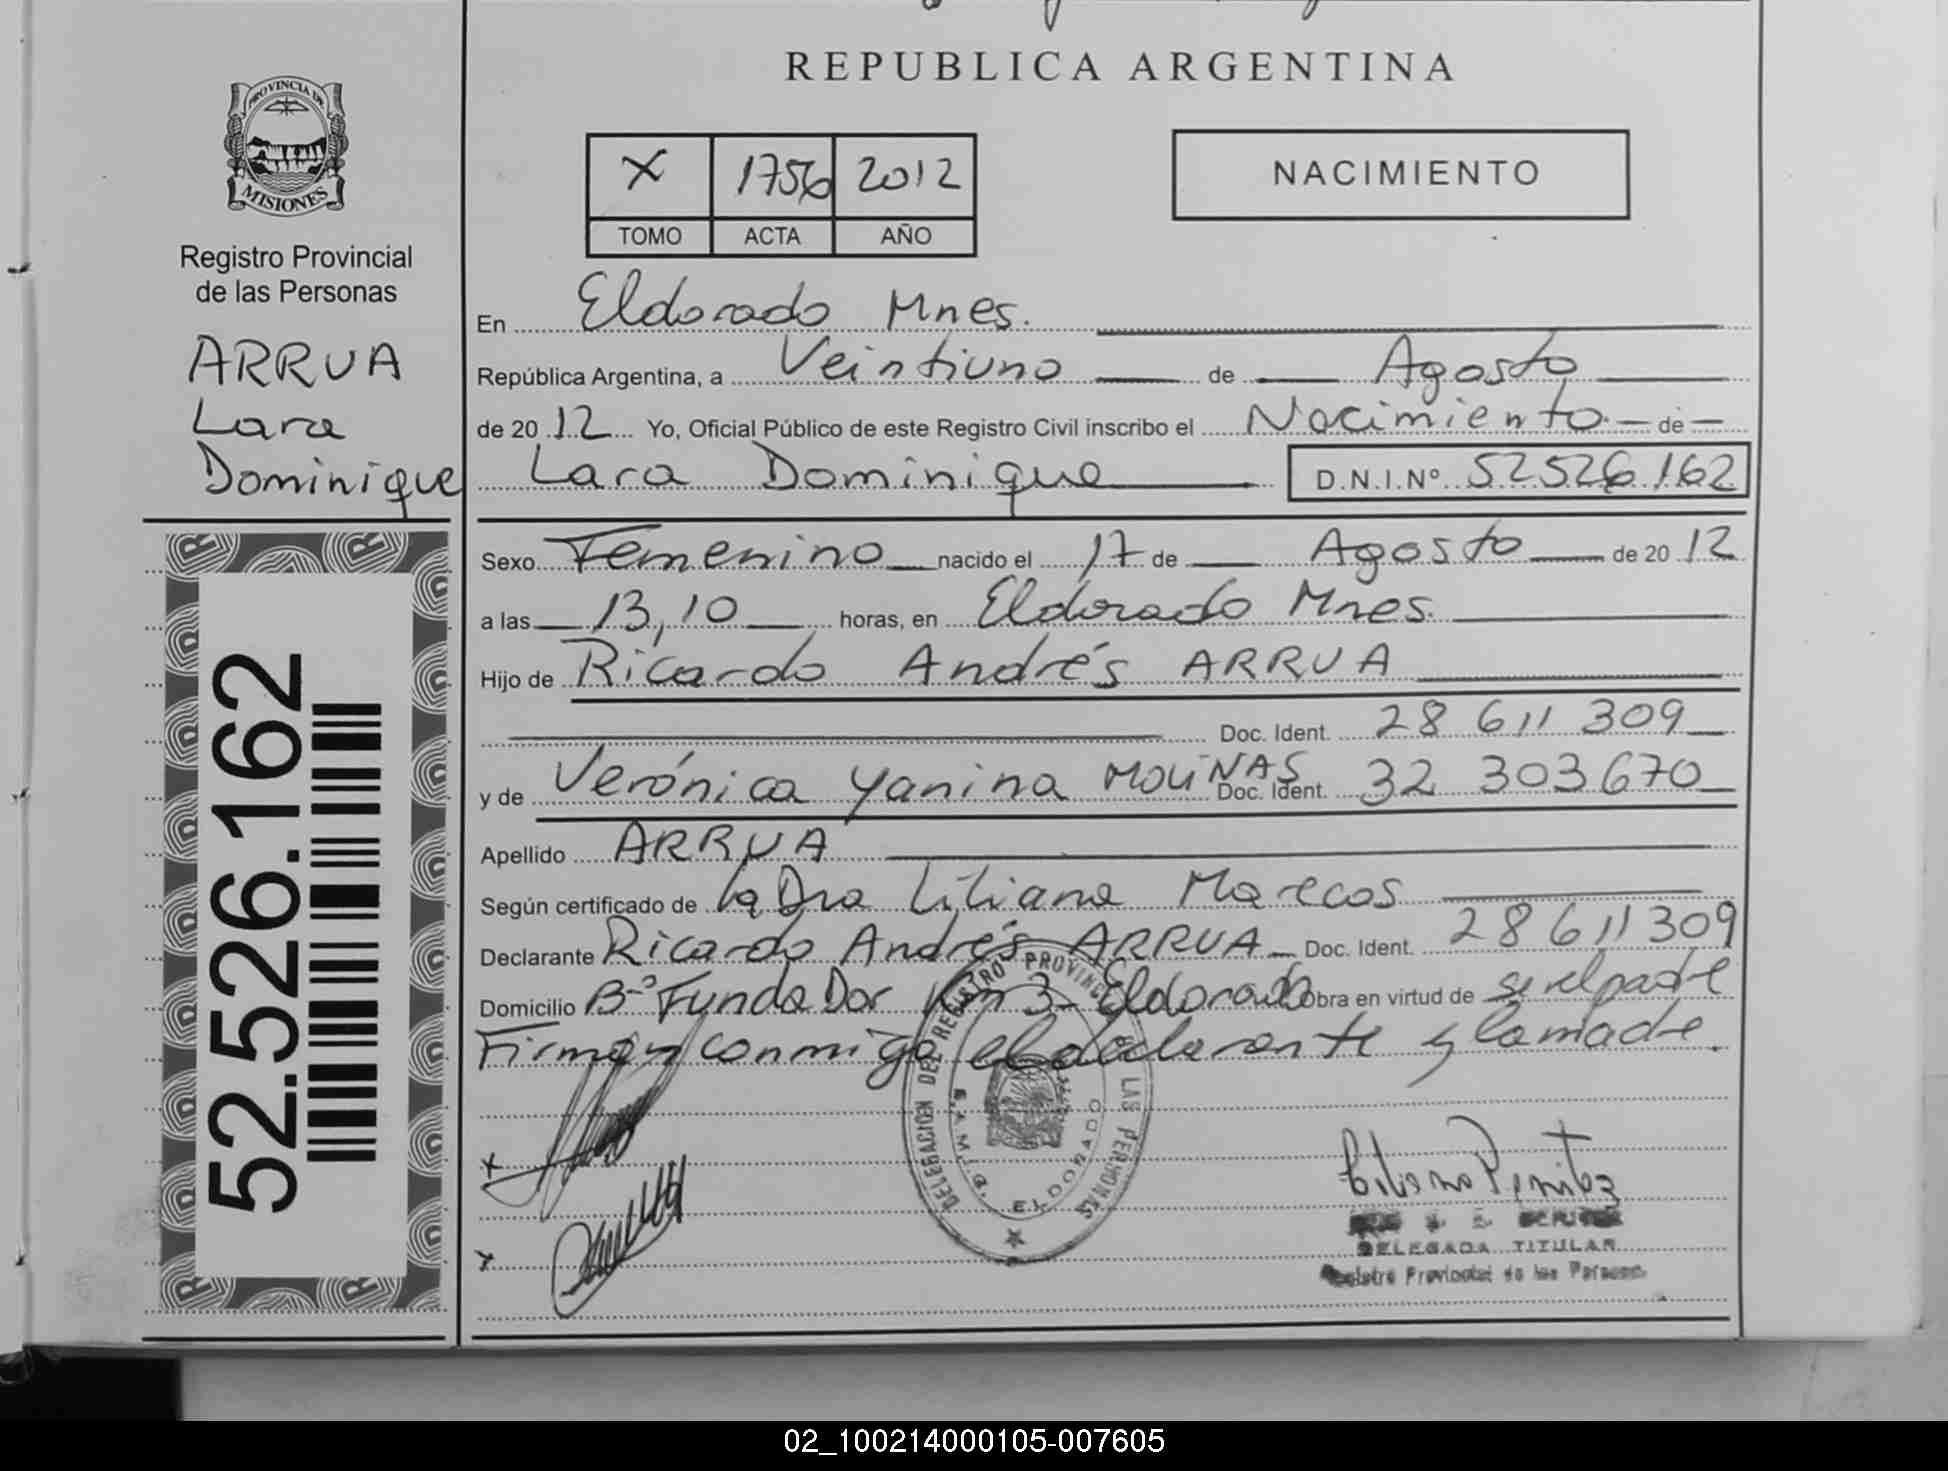 REPUBLICA ARGENTINA
PROVINCIA DE
MISIONES
Registro Provincial
de las Personas
ARRUA
Lara
Dominique
52.526.162
X 1756 2012
TOMO ACTA AÑO
NACIMIENTO
En Eldorado Mnes.
República Argentina, a Veintiuno de Agosto
de 20 12 Yo, Oficial Público de este Registro Civil inscribo el Nacimiento de
Lara Dominique D.N.I.Nº 52526162
Sexo Femenino nacido el 17 de Agosto de 20 12
a las 13,10 horas, en Eldorado Mnes.
Hijo de Ricardo Andrés ARRUA
Doc. Ident. 28 611 309
y de Verónica Yanina MOLINAS Doc. Ident. 32 303670
Apellido ARRUA
Según certificado de la Dra Liliana Marecos
Declarante Ricardo Andrés ARRUA Doc. Ident. 28611309
Domicilio Bº Fundador Km 3 Eldorado Obra en virtud de ser el padre
Firman conmigo el declarante y la madre.
DELEGACION DEL REGISTRO PROVINCIAL DE LAS PERSONAS
ELDORADO
DELEGADA TITULAR
Registro Provincial de las Personas
02_100214000105-007605